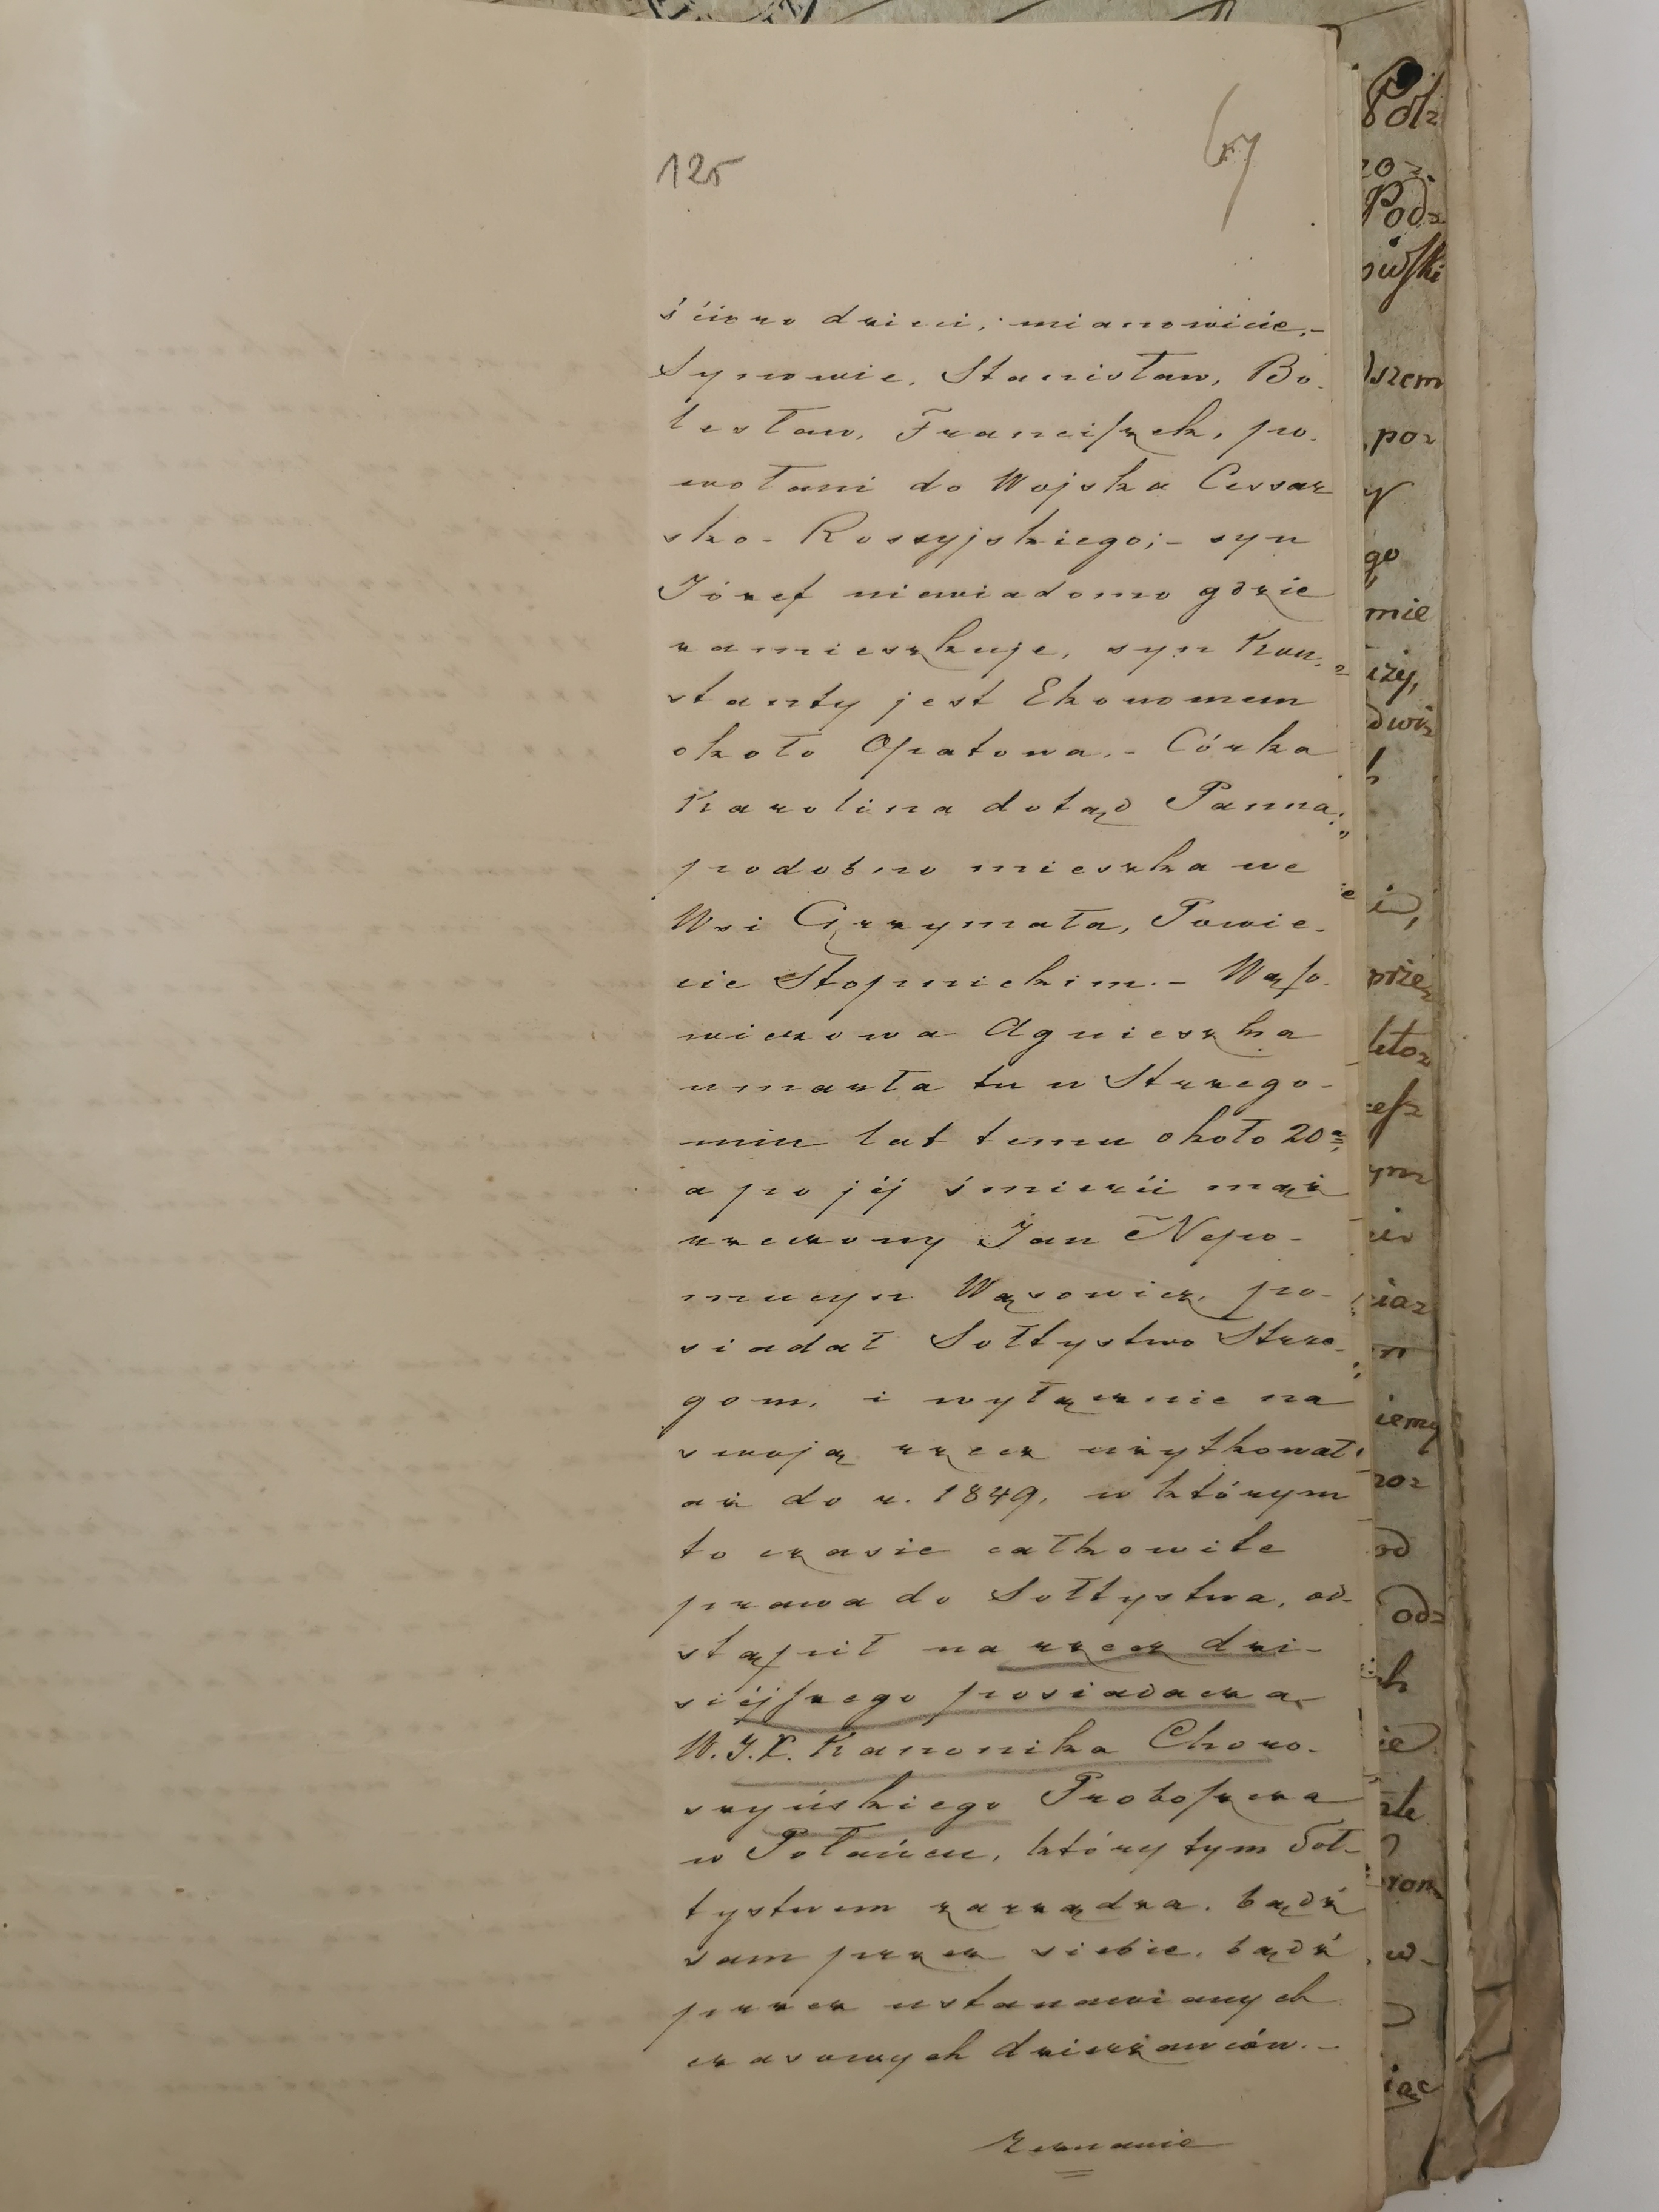 125
67
ścioro dzieci; mianowicie,-
Synowie, Stanisław, Bo-
lesław, Franciszek, po-
wołani do Wojska Cessar
sko- Rossyjskiego;- syn
Józef niewiadomo gdzie
zamieszkuje, syn Kon-
stanty jest Ekonomem
około Opatowa.- Córka
Karolina dotąd Panna,
podobno mieszka we
Wsi Grzymała, Powie-
cie Stopnickim.- Wąso-
wiczowa Agnieszka
umarła tu w Strzego-
miu lat temu około 20a,
a po jéj śmierći mąż
rzeczony Jan Nepo-
mucyn Wąsowicz, po-
siadał Sołtystwo Strze-
gom, i wyłącznie na
swoją rzecz użytkował
aż do r. 1849, w którym
to czasie całkowite
prawa do Sołtystwa, od-
stąpił na rzecz dzi-
siéjszego posiadacza
W. J. X. Kanonika Choro-
szyńskiego Proboszcza
w Połańcu, który tym Soł-
tystwem zarządza, bądź
sam przez siebie, bądź
przez ustanawianych
czasowych dzierżawców.-
Zeznanie